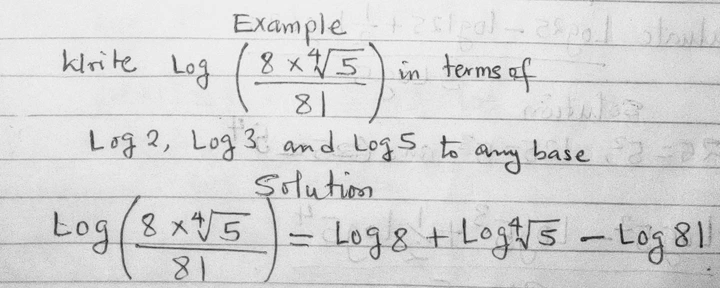 Example
Write Log (8 × ∜5 / 81) in terms of
Log 2, Log 3 and Log 5 to any base
Solution
Log (8 × ∜5 / 81) = Log 8 + Log ∜5 − Log 81